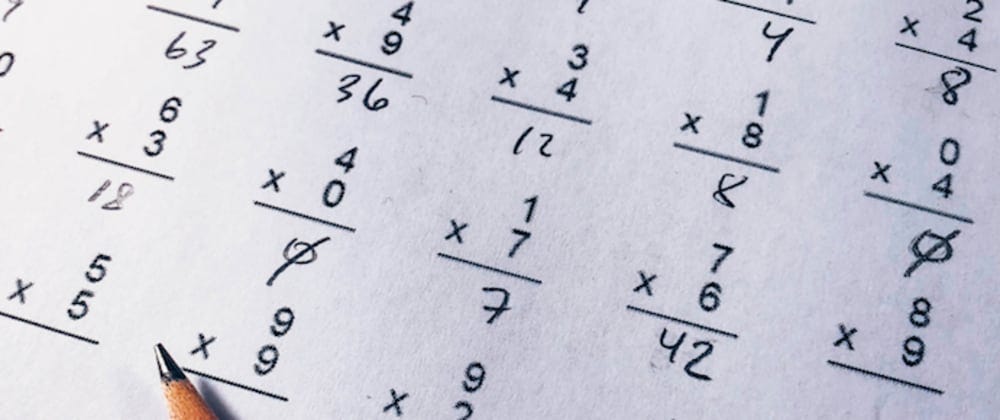 63
4
× 9
36
3
× 4
12
4
2
× 4
8
6
× 3
18
4
× 0
0
1
× 7
7
1
× 8
8
0
× 4
0
5
× 5
9
× 9
9
×
7
× 6
42
8
× 9